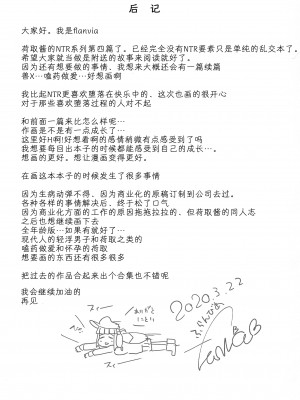 后记
大家好。我是flanvia
荷取酱的NTR系列第四篇了。已经完全没有NTR要素只是单纯的乱交本了。
希望大家就当做是附送的故事来阅读就好了。
因为还有想要做的事情、我想来大概还会有一篇续篇
兽X…嗑药做爱…好想画啊
我比起NTR更喜欢堕落在快乐中的、这次也画的很开心
对于那些喜欢堕落过程的人对不起
和前面一篇来比怎么样呢…
作画是不是有一点成长了…
这里好H啊!好想看啊的感情稍微有点感受到了吗
我想要每目出本子的时候都能感受到自己的成长…
想画的更好。想让漫画变得更好。
在画这本本子的时候发生了很多事情
因为生病动弹不得、因为商业化的原稿订制到公司去过。
各种各样的事情解决后、终于松了口气
因为商业化方面的工作的原因拖拖拉拉的、但荷取酱的同人志
之后也想继续画下去
全年龄版…如果有就好了…
现代人的轻浮男子和荷取之类的
嗑药做爱和怀孕的荷取
想要画的东西还有很多很多
把过去的作品合起来出个合集也不错呢
我会继续加油的
再见
2020.3.22
ふらんびあ
ありがと
にとり
スィー
スィー